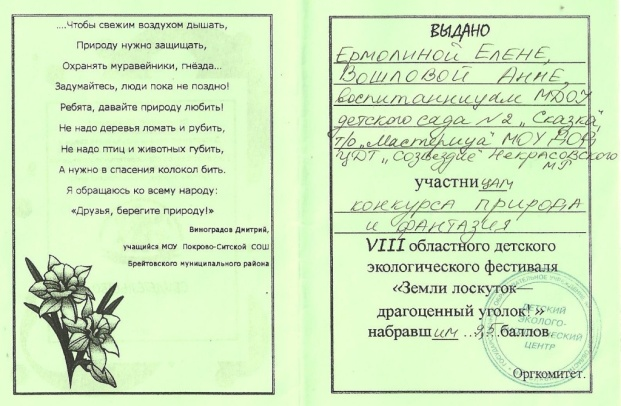 ....Чтобы свежим воздухом дышать,
Природу нужно защищать,
Охранять муравейники, гнёзда...
Задумайтесь, люди пока не поздно!
Ребята, давайте природу любить!
Не надо деревья ломать и рубить,
Не надо птиц и животных губить,
А нужно в спасения колокол бить.
Я обращаюсь ко всему народу:
«Друзья, берегите природу!»
Виноградов Дмитрий,
учащийся МОУ Покрово-Ситской СОШ
Брейтовского муниципального района
ВЫДАНО
Ермолиной Елене,
Вошловой Анне,
воспитанницам МДОУ
детского сада №2 „Сказка",
т/о „Мастерица" МОУ ДОД
ЦДТ „Созвездие" Некрасовского
МР
участницам
конкурса природа
и фантазия
VIII областного детского
экологического фестиваля
«Земли лоскуток—
драгоценный уголок!»
набравшим ..9,5 баллов
ДЕТСКИЙ
ЭКОЛОГО-
ЦЕНТР
Оргкомитет.